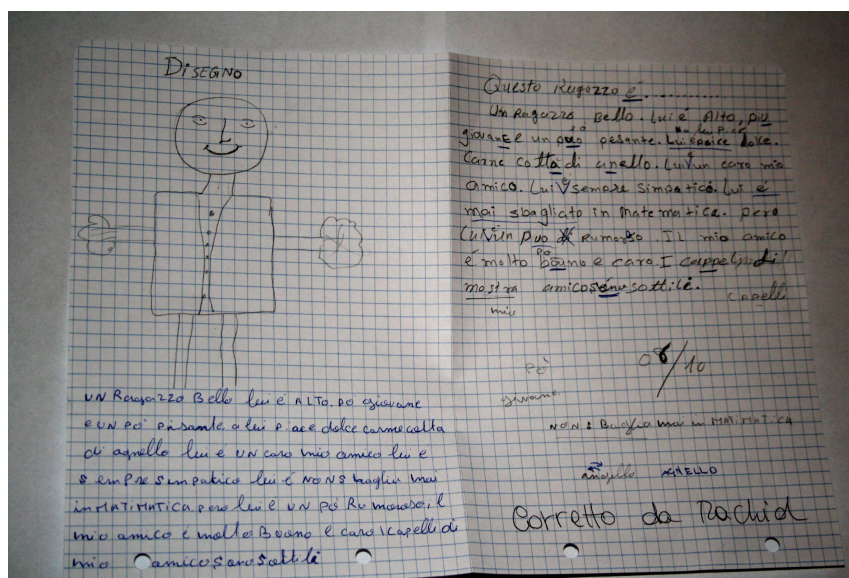 DISEGNO
UN Ragazzo Bello lui é ALTO. PO giovane
e UN PO' pesante, a lui piace dolce carne cotta
di agnello lui é UN caro mio amico lui e
sempre simpatico lui é NON Sbaglia mai
in MATIMATICA pero lui é UN PÓ Rumoroso, il
mio amico é molto Buono e caro I capelli di
mio amico Sono Sottili
Questo Ragazzo é..........
Un Ragazzo Bello. Lui é Alto, piu
giovane e un puo pesante. Lui epaice dolce.
Carne cotta di anello. Lui é un caro mio
amico. Lui é sempre Simpatico. Lui é
mai sbagliato in matematica. pero
Lui un puo di Rumoroso. IL mio amico
é molto bouno e caro. I cappeli di
mostra amico sono sottile.
mio
capelli
Po'
giovane
08/10
NON: Sbaglia mai in MATIMATICA
angello AGNELLO
Corretto da Rachid